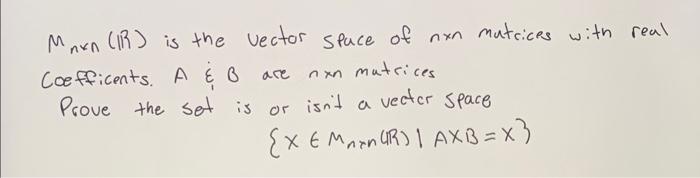 Mnxn (IR) is the vector space of nxn matrices with real
Coefficents. A & B are nxn matrices
Prove the set is or isn't a vector space
{X ∈ Mnxn(IR) | AXB = X}